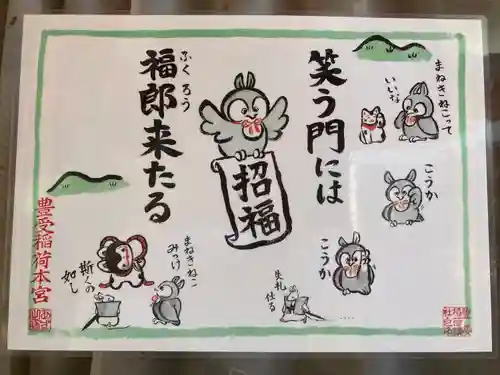 笑う門には
福郎来たる
ふくろう
招福
まねきねこって
いいな
こうか
こうか
失礼
仕る
まねきねこ
みっけ
斯くの
如し
豊受稲荷本宮